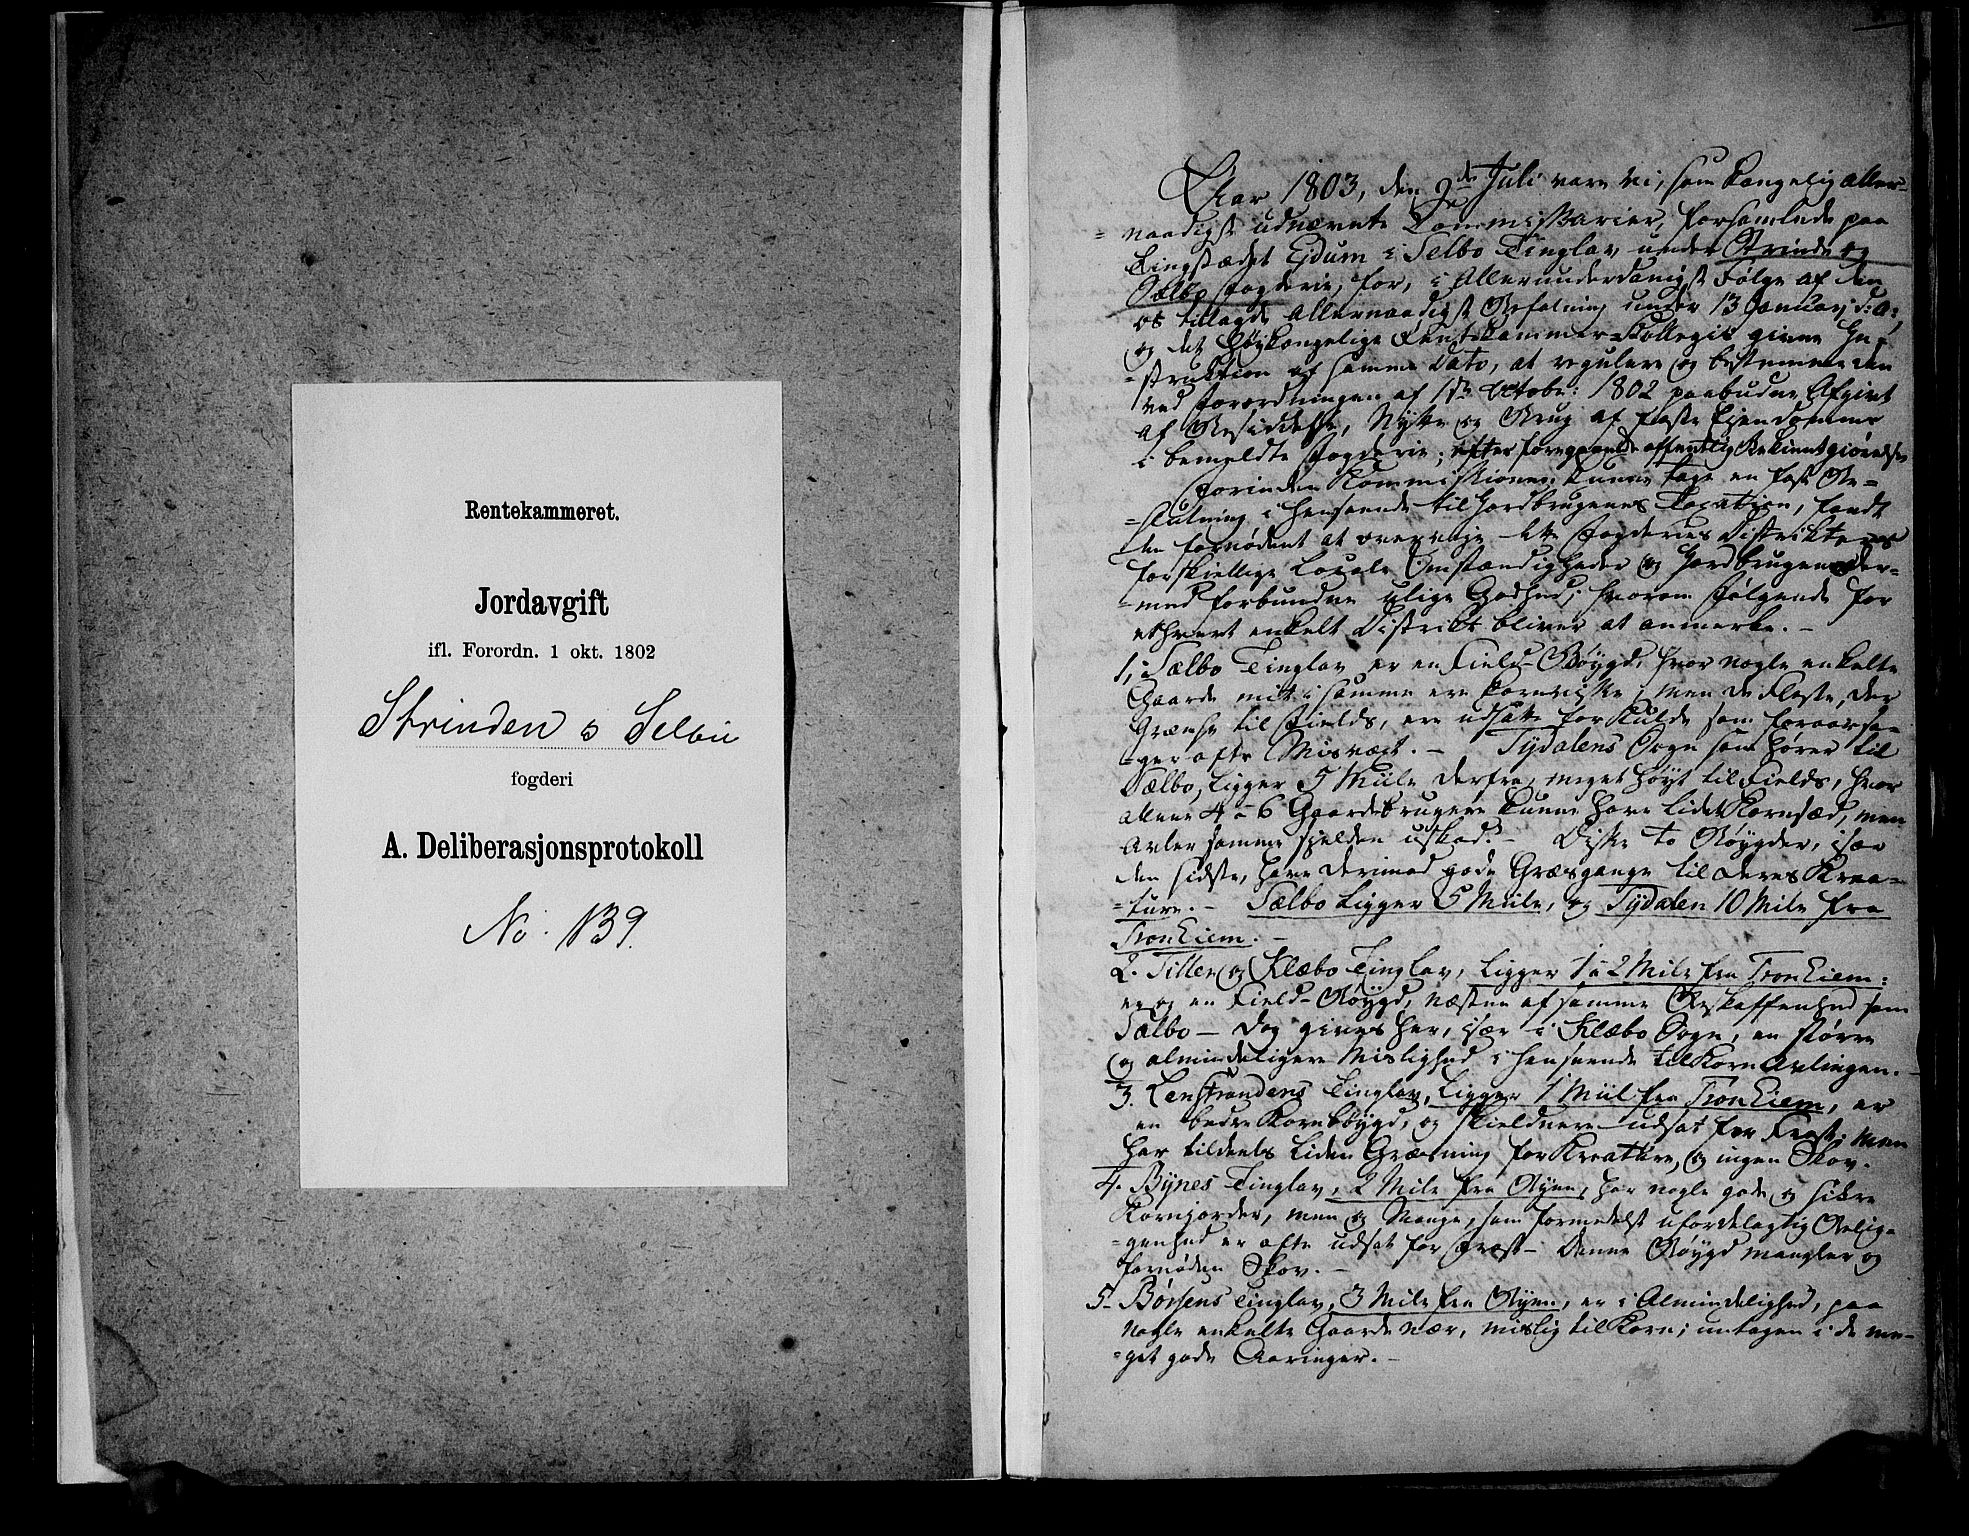 Rentekammeret.
Jordavgift
ifl. Forordn. 1 okt. 1802
Strinden o Selbu
fogderi
A. Deliberasjonsprotokoll
No. 139.
Aar 1803, den 2de Juli vare vi, som Kongelig aller-
=naadigst udnævnte Commissarier, forsamlede paa
Tingstædet Eidum i Selbo Tinglav, under Strinde og
Selbo Fogderie, for, i Allerunderdanigst Følge af den
os tillagde Allernaadigst Befaling under 13 Januar; d: A:,
og det Høykongelige Rentekammer-Kollegii givne In-
=struktion af samme Dato, at regulere og bestemme den
ved Forordningen af 1ste Octobr: 1802 paabudne Afgivt
af Besiddelse, Nytte og Brug af faste Eiendomme
i bemeldte Fogderie; efter foregaaende offentlig Bekiendtgiørelse
Forinden Kommissionen kunde tage en fast Be-
=slutning i Henseende til Jordbrugenes Taxation, fandt
den fornødent at overveje dette Fogderies Distrikters
forskiellige Locale Omstændigheder og Jordbrugenes der-
=med forbundne ulige Godhed; hvorom Følgende for
ethvert enkelt Distrikt bliver at anmerke. -
1, Sælbo Tinglav er en Field-Bøygd, hvor nogle enkelte
Gaarde midt i samme ere kornvisse; men de fleste, der
Grændse til Fields, ere udsatte for Kulde som foraarsa-
=ger ofte Misvæxt. - Tydalens Sogn som hører til
Sælbo, ligger 5 Miile derfra, meget høyt til Fields, hvor
allene 4 a 6 Gaardebrugere kunne have lidet Kornsæd, men
Avler samme sielden uskad. - Disse to Bøygder, især
den sidste, have derimod gode Græsgange til deres Krea-
=ture. - Sælbo ligger 5 Miile, og Tydalen 10 Mile fra
Tronhiem. -
2. Tiller og Klæbo Tinglav, ligger 1 a 2 Mile fra Tronhiem:
er og en Field-Bøygd, næsten af samme Beskaffenhed som
Sælbo - dog gives her, især i Klæbo Sogn, en større
og almindeligere Mislighed i Henseende til KornAvlingen. -
3. Leinstrandens Tinglav, ligger 1 Miil fra Tronhiem, er
en bedre Kornbøygd, og skieldnere udsat for Frost; men
har tildeels liden Græsning for Kreature, og ingen Skov.
4. Bynes Tinglav, 2 Mile fra Byen, har nogle gode og sikre
Kornjorder, men og Mange, som formedelst ufordelagtig Belig-
=genhed er ofte udsat for Frost - Denne Bøygd mangler og
fornøden Skov. -
5. Børsens Tinglav, 3 Mile fra Byen, er i Almindelighed, paa
nogle enkelte Gaarde nær, mislig til Korn; untagen i de me-
=get gode Aaringer. -